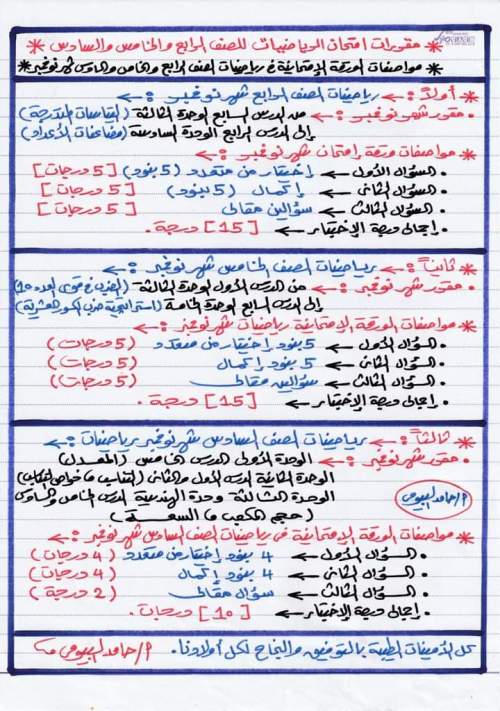 * مقررات امتحان الرياضيات للصف الرابع والخامس والسادس *
* مواصفات الورقة الإمتحانية فى رياضيات الصف الرابع والخامس والسادس شهر نوفمبر *
* أولاً: ← رياضيات الصف الرابع شهر نوفمبر :←
• مقرر شهر نوفمبر :← من الدرس السابع الوحدة الثالثة (القياسات المتدرجة)
إلى الدرس الرابع الوحدة السادسة (مضاعفات الأعداد)
* مواصفات ورقة إمتحان شهر نوفمبر :←
• السؤال الأول ← إختيار من متعدد (5 بنود) [5 درجات]
• السؤال الثانى ← إكمال (5 بنود) [5 درجات]
• السؤال الثالث ← سؤالين مقالى [5 درجات]
• إجمالى درجة الإختبار ← [15] درجة.
* ثانياً: ← رياضيات الصف الخامس شهر نوفمبر :←
• مقرر شهر نوفمبر :← من الدرس الأول الوحدة الثالثة (الضرب فى قوى العدد 10)
إلى الدرس السابع الوحدة الخامسة (استراتيجية ضرب الكسور العشرية)
* مواصفات الورقة الإمتحانية رياضيات شهر نوفمبر :←
• السؤال الأول ← 5 بنود إختيار من متعدد (5 درجات)
• السؤال الثانى ← 5 بنود إكمال (5 درجات)
• السؤال الثالث ← سؤالين مقالى (5 درجات)
• إجمالى درجة الإختبار ← [15] درجة.
* ثالثاً: ← رياضيات الصف السادس شهر نوفمبر رياضيات :←
• مقرر شهر نوفمبر :← الوحدة الأولى الدرس الخامس (المعدل)
الوحدة الثانية الدرس الأول والثانى (التناسب
الوحدة الثالثة وحدة الهندسة الدرس الخامس والسادس
(حجم المكعب والسعة)
أ/حامد البيومى
* مواصفات الورقة الإمتحانية فى رياضيات الصف السادس شهر نوفمبر :←
• السؤال الأول ← 4 بنود إختيار من متعدد (4 درجات)
• السؤال الثانى ← 4 بنود إكمال (4 درجات)
• السؤال الثالث ← سؤال مقالى (2 درجة)
• إجمالى درجة الإختبار ← [10] درجات.
كل الأمنيات الطيبة بالتوفيق والنجاح لكل أولادنا. أ/حامد البيومى